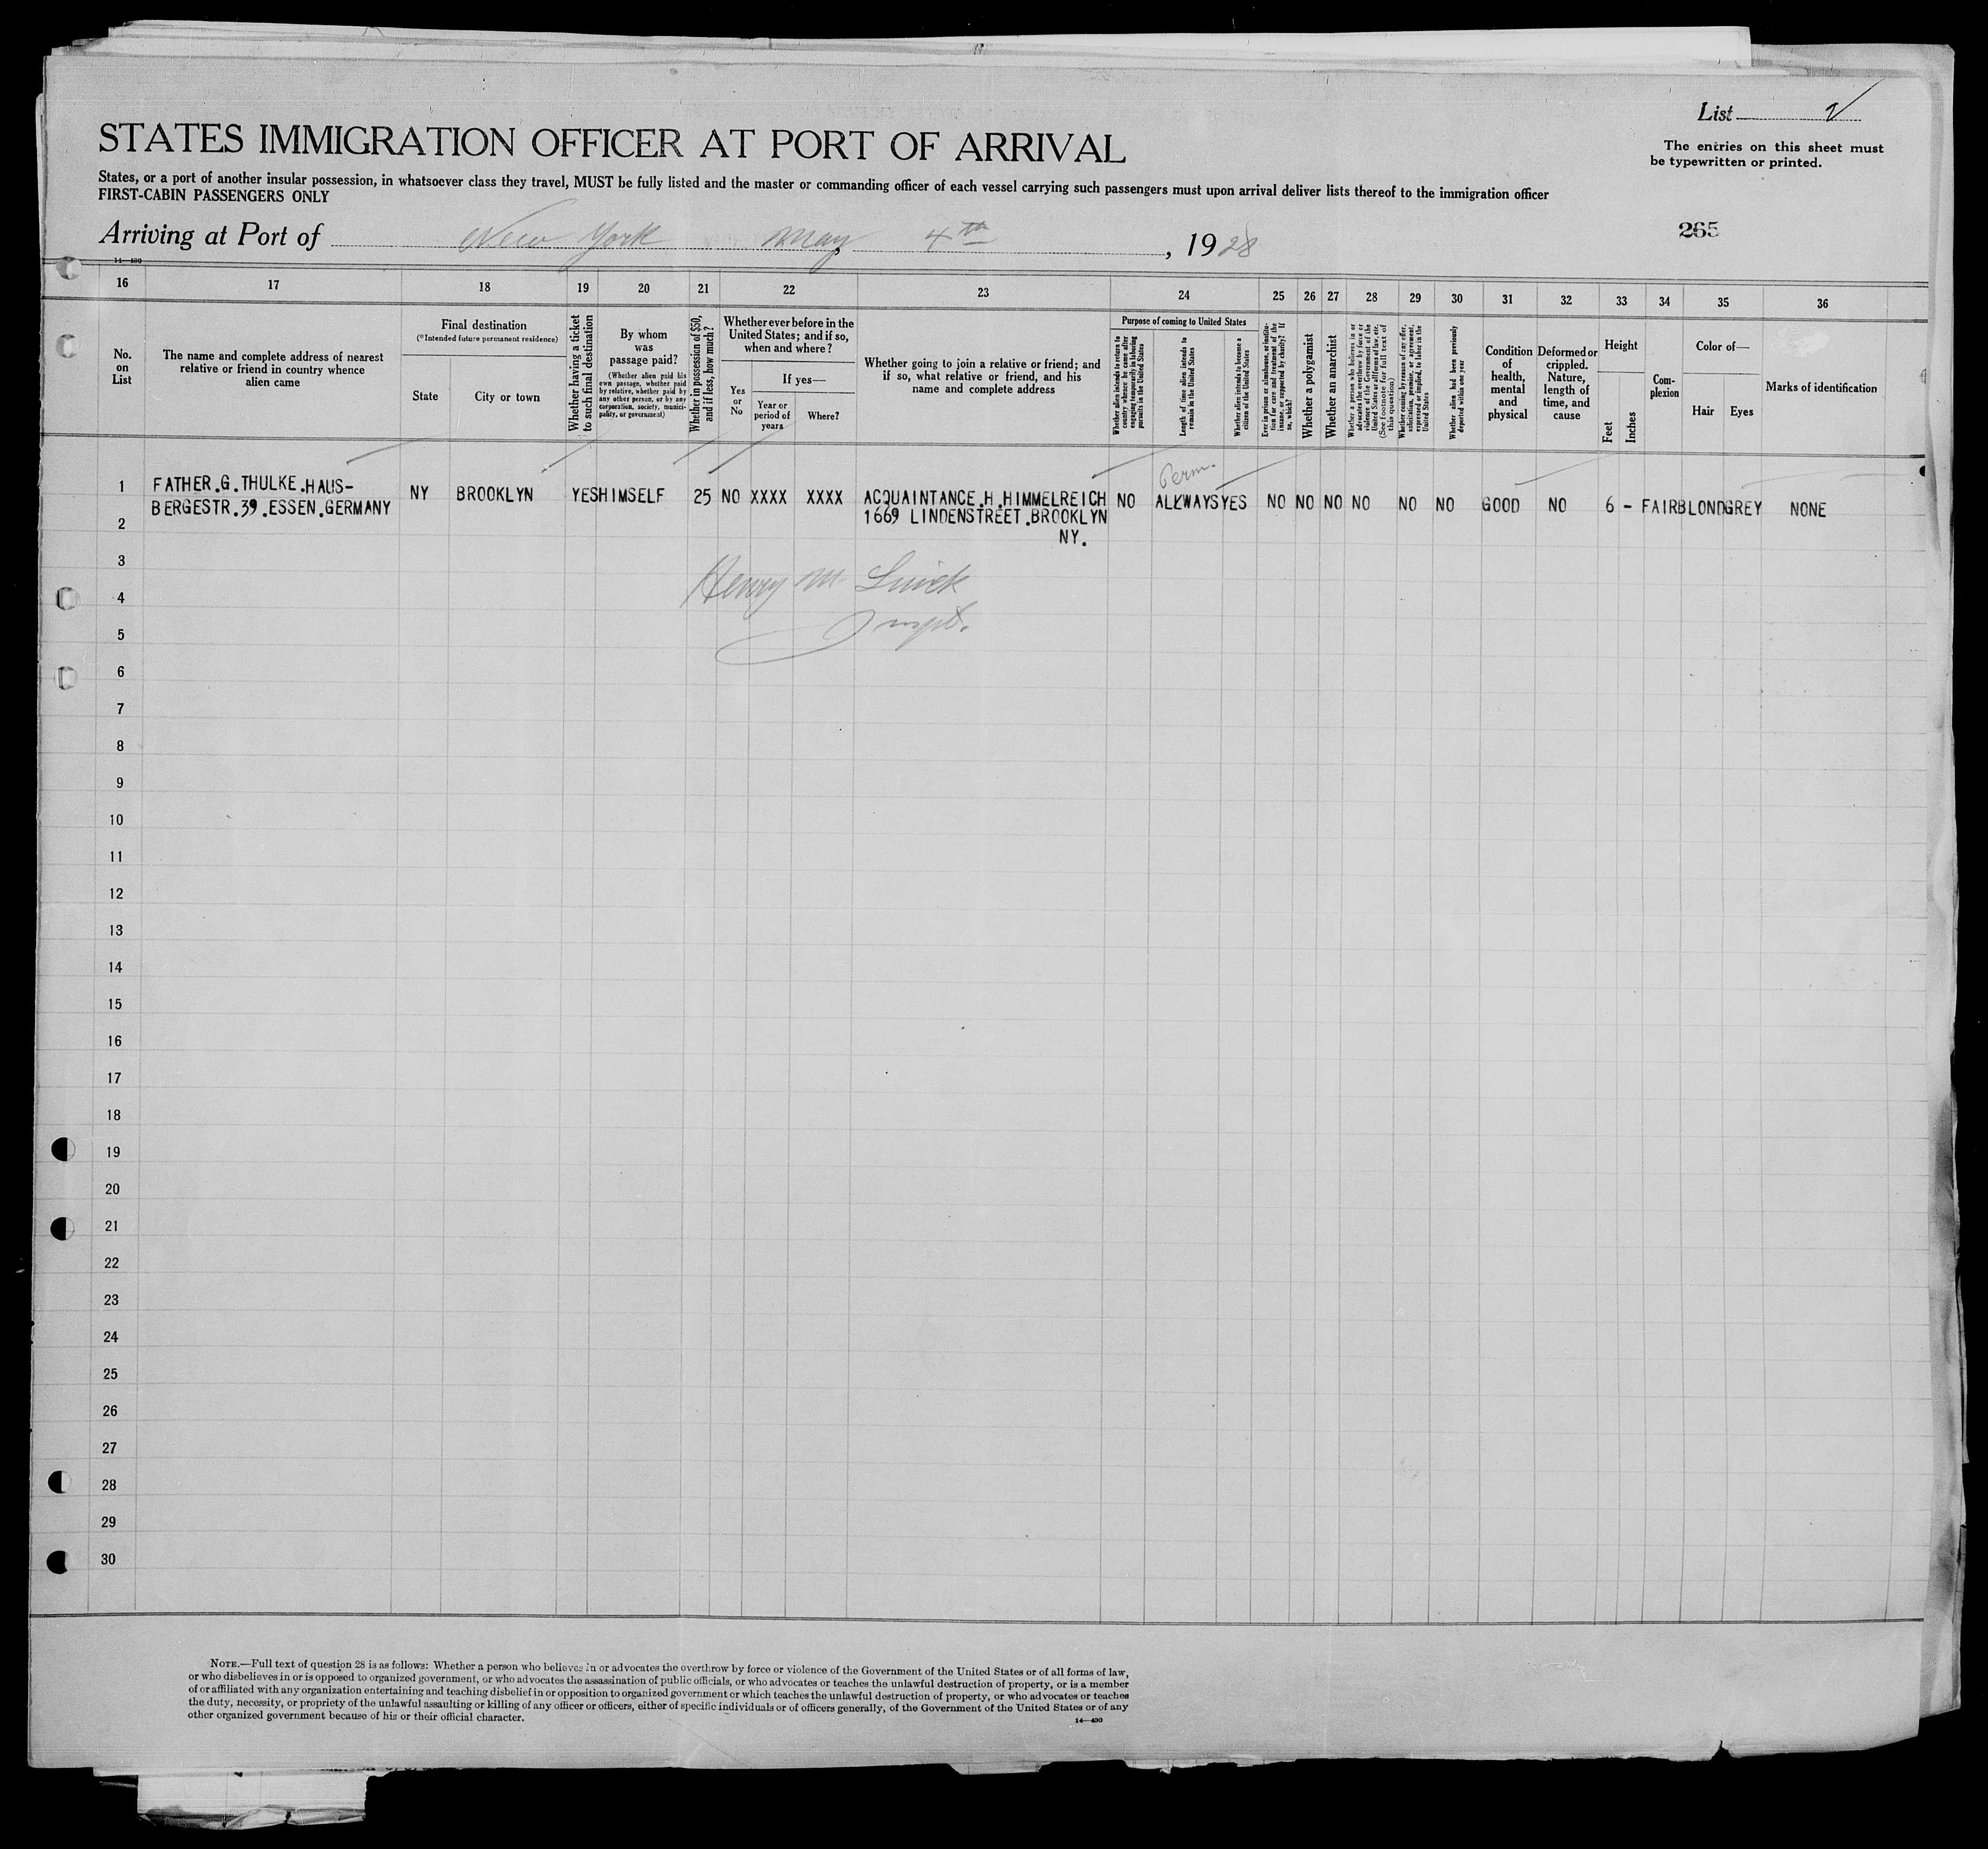 List 2
STATES IMMIGRATION OFFICER AT PORT OF ARRIVAL
The entries on this sheet must
be typewritten or printed.
States, or a port of another insular possession, in whatsoever class they travel, MUST be fully listed and the master or commanding officer of each vessel carrying such passengers must upon arrival deliver lists thereof to the immigration officer
FIRST-CABIN PASSENGERS ONLY
265
Arriving at Port of New York May 4th, 1928
14—430
16 17 18 19 20 21 22 23 24 25 26 27 28 29 30 31 32 33 34 35 36
No.
on
List
The name and complete address of nearest
relative or friend in country whence
alien came
Final destination
(*Intended future permanent residence)
State
City or town
Whether having a ticket
to such final destination
By whom
was
passage paid?
(Whether alien paid his
own passage, whether paid
by relative, whether paid by
any other person, or by any
corporation, society, munici-
pality, or government)
Whether in possession of $50,
and if less, how much?
Whether ever before in the
United States; and if so,
when and where?
Yes
or
No
If yes—
Year or
period of
years
Where?
Whether going to join a relative or friend; and
if so, what relative or friend, and his
name and complete address
Purpose of coming to United States
Whether alien intends to return to
country whence he came after
engaging temporarily in laboring
pursuits in the United States
Length of time alien intends to
remain in the United States
Whether alien intends to become a
citizen of the United States
Ever in prison or almshouse, or institu-
tion for care and treatment of the
insane, or supported by charity? If
so, which?
Whether a polygamist
Whether an anarchist
Whether a person who believes in or
advocates the overthrow by force or
violence of the Government of the
United States or all forms of law, etc.
(See footnote for full text of
this question)
Whether coming by reason of any offer,
solicitation, promise, or agreement,
expressed or implied, to labor in the
United States
Whether alien had been previously
deported within one year
Condition
of
health,
mental
and
physical
Deformed or
crippled.
Nature,
length of
time, and
cause
Height
Feet
Inches
Com-
plexion
Color of—
Hair
Eyes
Marks of identification
Perm.
1 FATHER.G.THULKE.HAUS- NY BROOKLYN YES HIMSELF 25 NO XXXX XXXX ACQUAINTANCE.H.HIMMELREICH NO ALLWAYS YES NO NO NO NO NO NO GOOD NO 6 - FAIR BLOND GREY NONE
BERGESTR.39.ESSEN.GERMANY
2 1669 LINDENSTREET.BROOKLYN
NY.
3
Henry M
4
5 Inspt.
6
7
8
9
10
11
12
13
14
15
16
17
18
19
20
21
22
23
24
25
26
27
28
29
30
NOTE.—Full text of question 28 is as follows: Whether a person who believes in or advocates the overthrow by force or violence of the Government of the United States or of all forms of law,
or who disbelieves in or is opposed to organized government, or who advocates the assassination of public officials, or who advocates or teaches the unlawful destruction of property, or is a member
of or affiliated with any organization entertaining and teaching disbelief in or opposition to organized government or which teaches the unlawful destruction of property, or who advocates or teaches
the duty, necessity, or propriety of the unlawful assaulting or killing of any officer or officers, either of specific individuals or of officers generally, of the Government of the United States or of any
other organized government because of his or their official character.
14—430